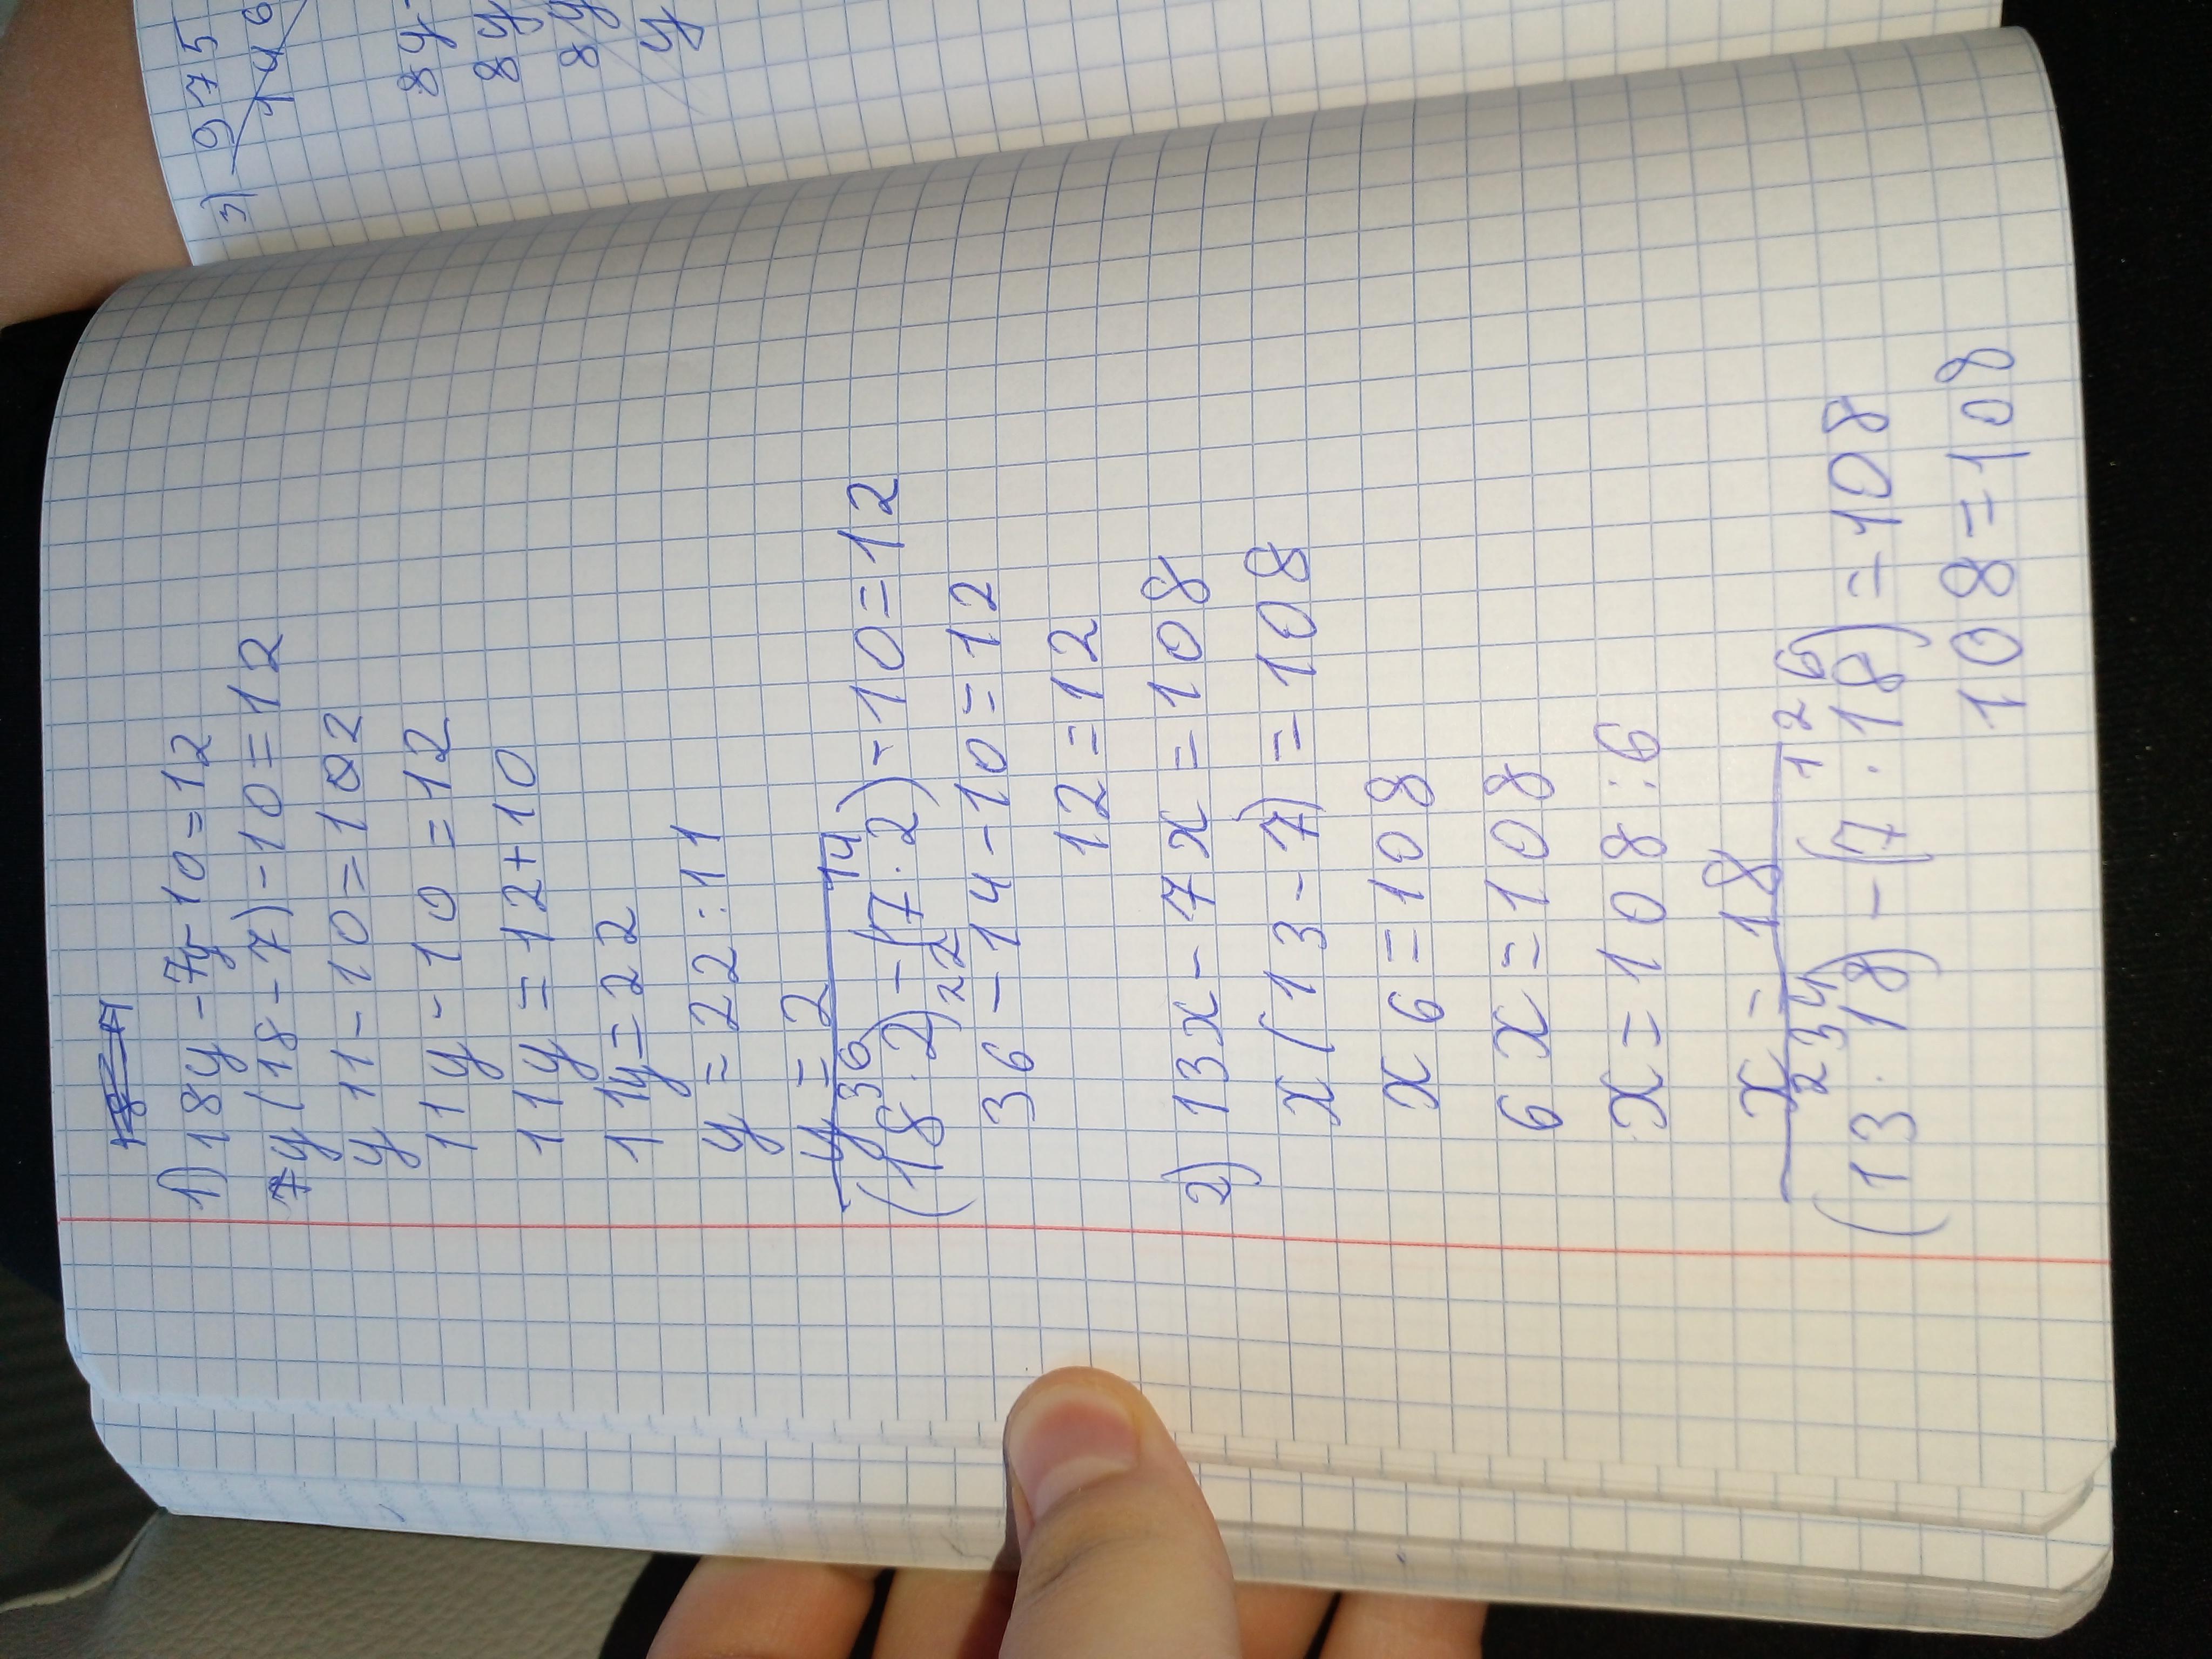 1) 18y - 7y - 10 = 12
y(18 - 7) - 10 = 12
y 11 - 10 = 102
11y - 10 = 12
11y = 12 + 10
11y = 22
y = 22 : 11
y = 2
36 14
(18 · 2) - (7 · 2) - 10 = 12
22
36 - 14 - 10 = 12
12 = 12
2) 13x - 7x = 108
x(13 - 7) = 108
x 6 = 108
6x = 108
x = 108 : 6
x = 18
234 126
(13 · 18) - (7 · 18) = 108
108 = 108
3) 975
8y
8y
8y
y